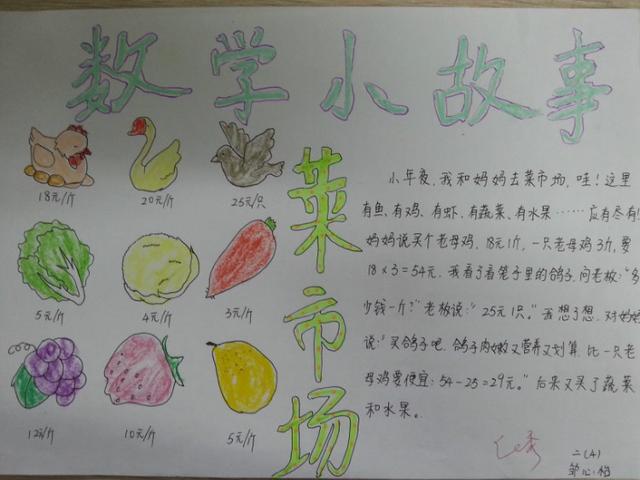 数学小故事
18元/斤
20元/斤
25元/只
5元/斤
4元/斤
3元/斤
12元/斤
10元/斤
5元/斤
菜市场
小年夜，我和妈妈去菜市场，哇！这里
有鱼、有鸡、有虾、有蔬菜、有水果……应有尽有！
妈妈说买个老母鸡，18元1斤，一只老母鸡3斤，要
18×3=54元。我看了看笼子里的鸽子，问老板：“多
少钱一斤？”老板说：“25元1只。”我想了想，对妈妈
说：“买鸽子吧，鸽子肉嫩又营养又划算，比一只老
母鸡要便宜：54-25=29元。”后来又买了蔬菜
和水果。
二(4)
邹心